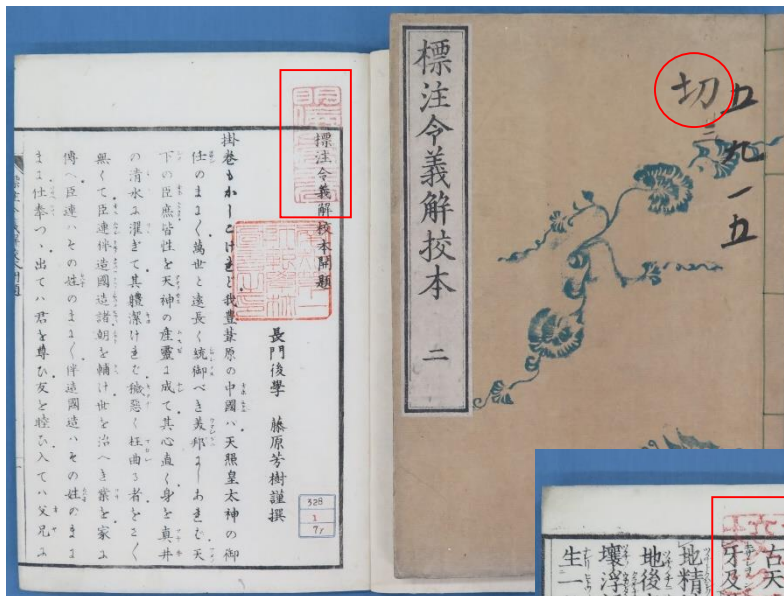 標注令義解校本開題
長門後學　藤原芳樹謹撰
掛巻もかしこけれど我豊葦原の中國ハ天照皇太神の御
任のまにまに萬世と遠長く統御べき美邦にしあれば天
下の臣庶皆性を天神の産靈に成て其心直く身を真井
の清水に濯ぎて其體潔ければ穢悪く枉曲る者もなく
無くて臣連伴造國造諸朝を輔け世を治へき業を家に
傳へ臣連ハその姓のままに伴造國造ハその姓のまま
まに仕奉つゝ出てハ君を尊ひ友を睦ひ入てハ父兄に
328
1
71
標注令義解校本　二
切
五九一五
古天
牙及
地精
地後
壤浮
生一